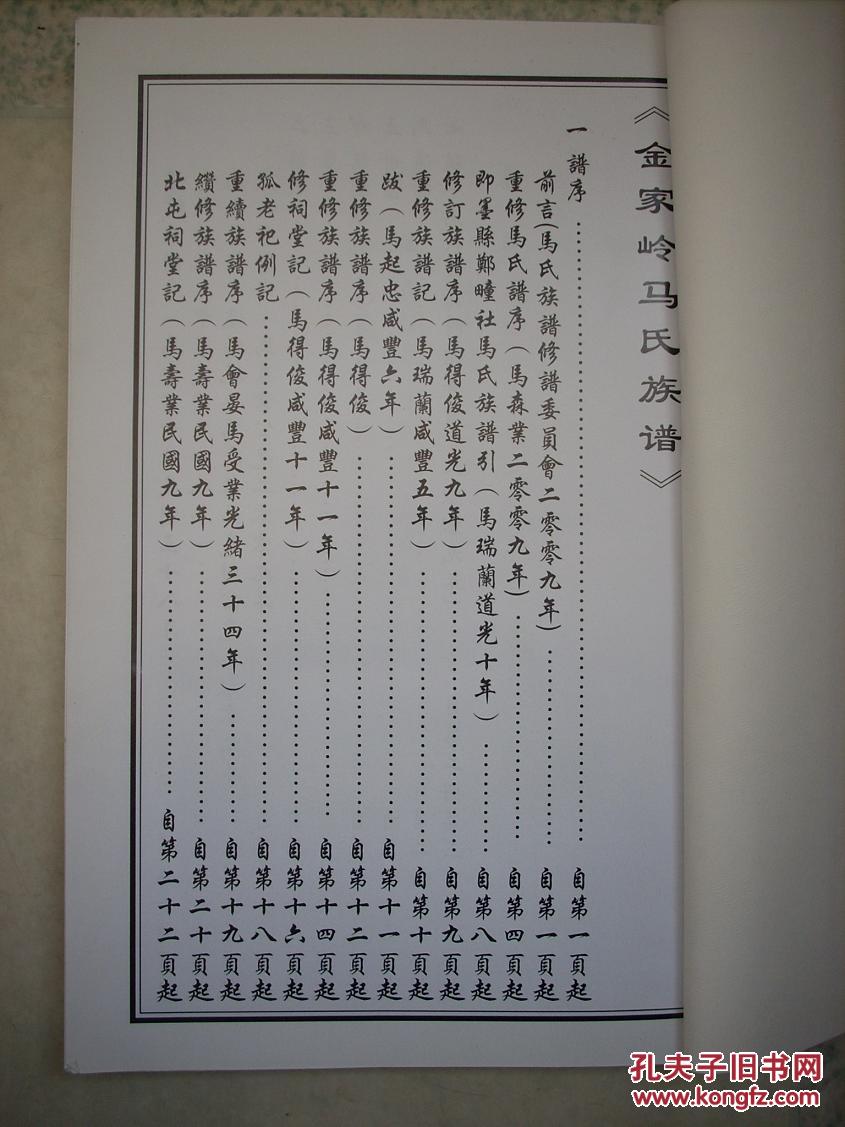 《金家岭马氏族谱》
一 譜序……自第一頁起
前言(馬氏族譜修譜委員會二零零九年)……自第一頁起
重修馬氏譜序(馬森業二零零九年)……自第四頁起
即墨縣鄭疃社馬氏族譜引(馬瑞蘭道光十年)……自第八頁起
修訂族譜序(馬得俊道光九年)……自第九頁起
重修族譜記(馬瑞蘭咸豐五年)……自第十頁起
跋(馬起忠咸豐六年)……自第十一頁起
重修族譜序(馬得俊)……自第十二頁起
重修族譜序(馬得俊咸豐十一年)……自第十四頁起
修祠堂記(馬得俊咸豐十一年)……自第十六頁起
孤老祀例記……自第十八頁起
重續族譜序(馬會晏馬受業光緒三十四年)……自第十九頁起
纘修族譜序(馬壽業民國九年)……自第二十頁起
北屯祠堂記(馬壽業民國九年)……自第二十二頁起
孔夫子旧书网
www.kongfz.com